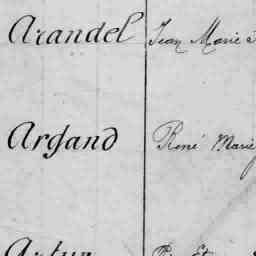 Arandel Jean Marie
Argand René Marie